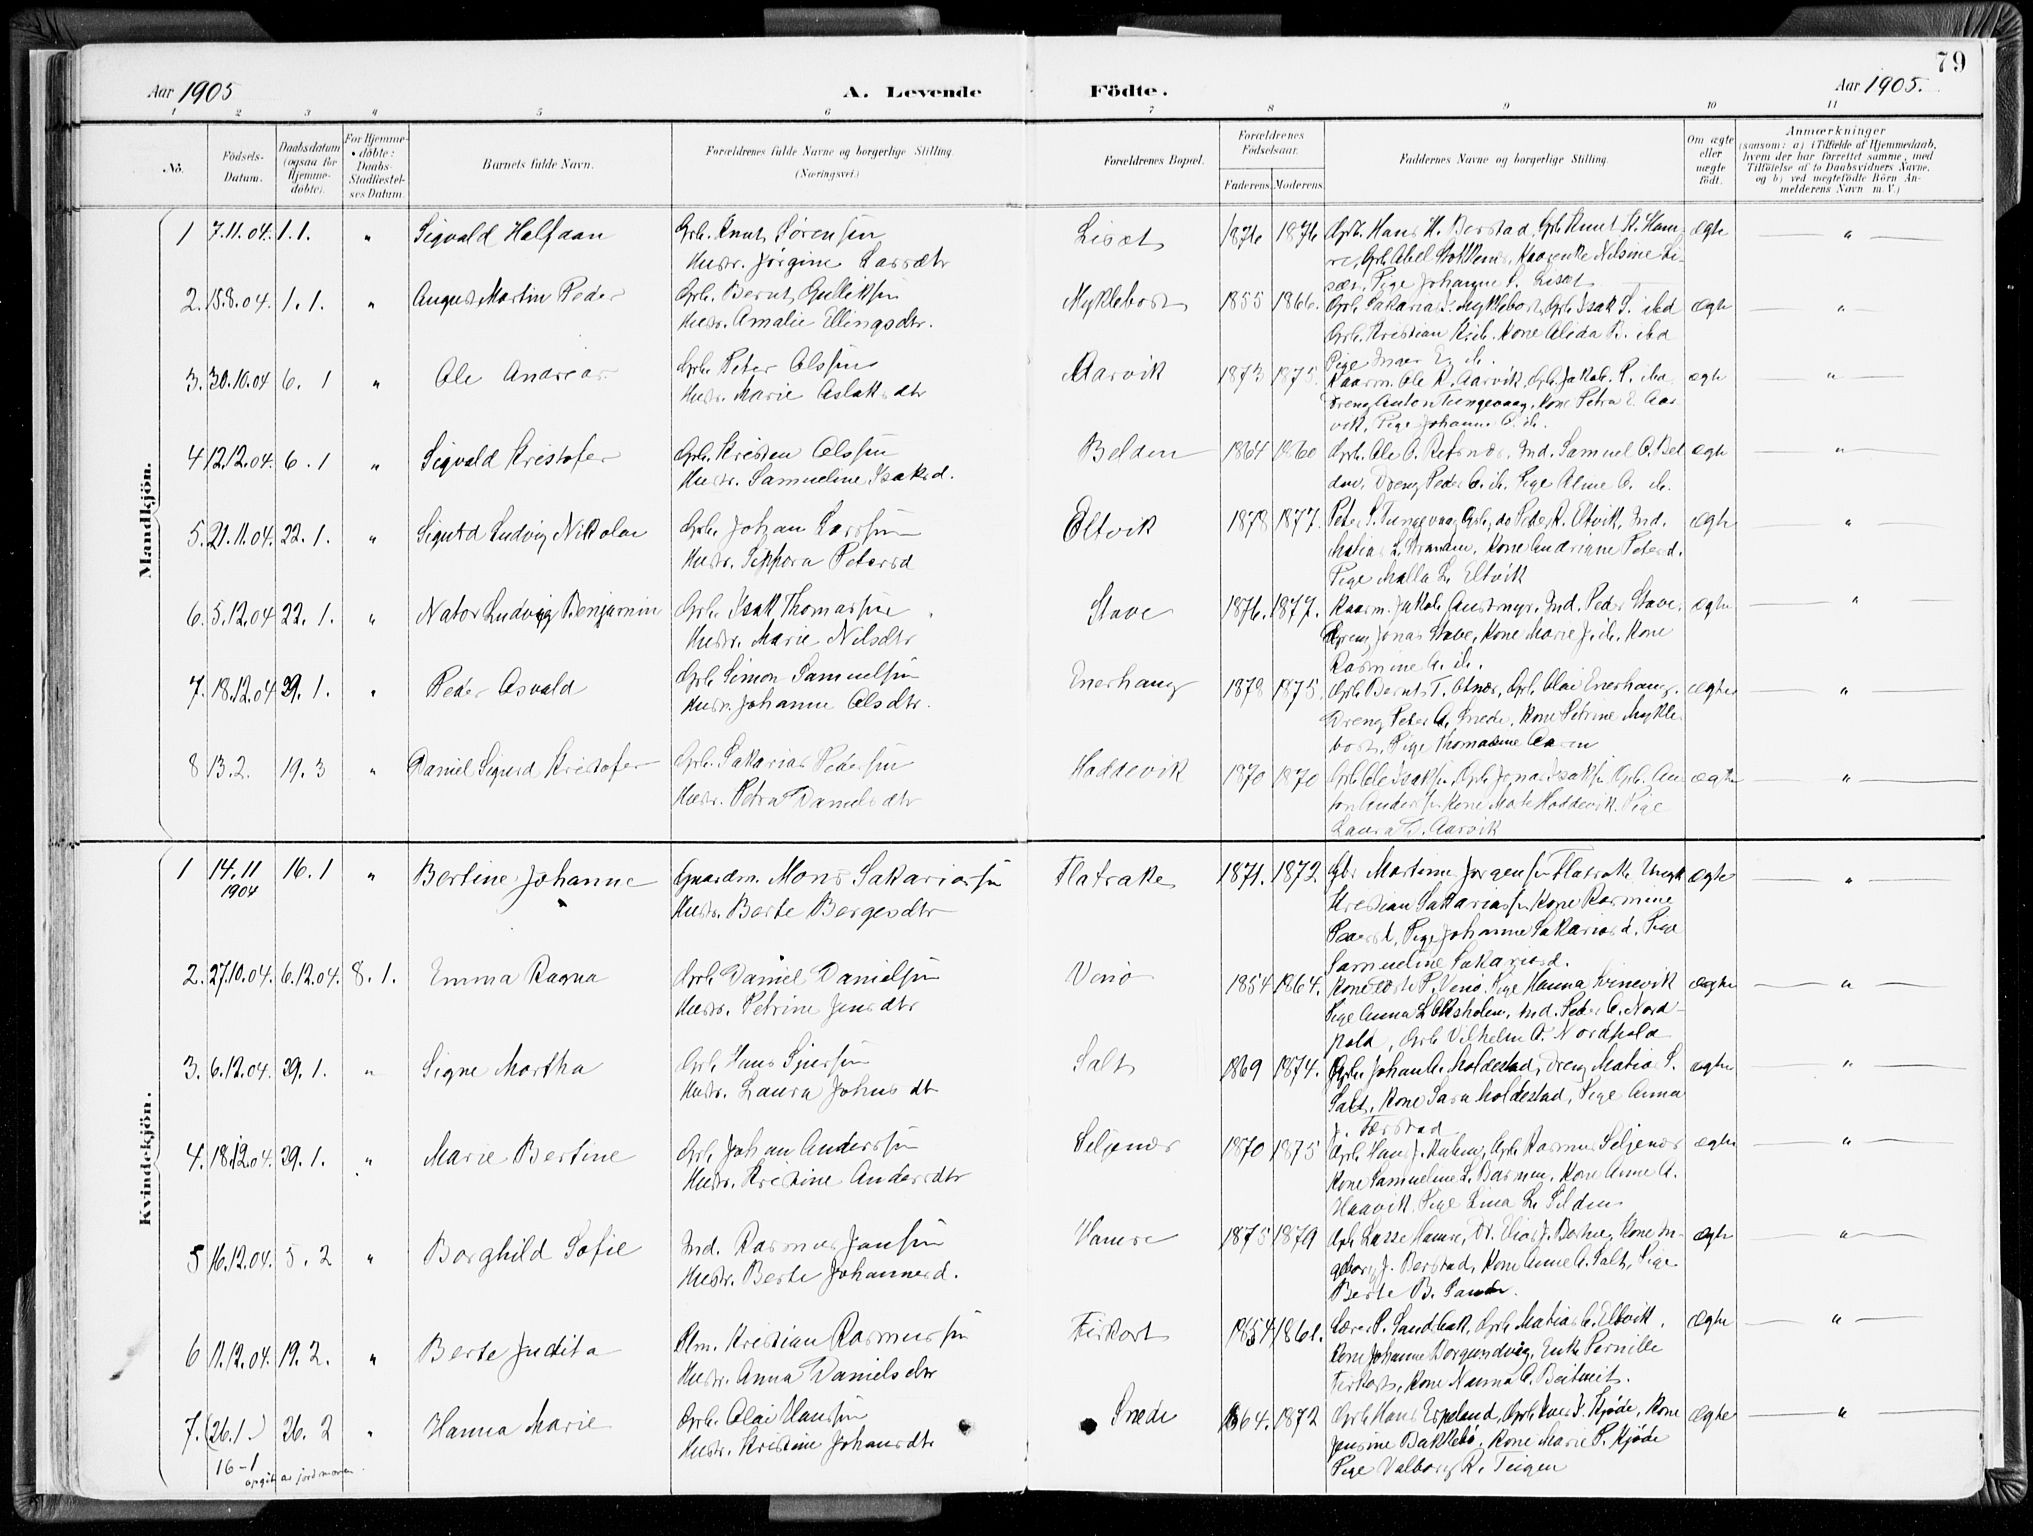 79
Aar 1905
A. Levende
Födte.
Aar 1905.
1 2 3 4 5 6 7 8 9 10 11
No.
Födsels-
Datum.
Daabsdatum
(ogsaa for
Hjemme-
döbte).
For Hjemme-
döbte:
Daabs-
Stadfæstel-
ses Datum.
Barnets fulde Navn.
Forældrenes fulde Navne og borgerlige Stilling.
(Næringsvei.)
Forældrenes Bopæl.
Forældrenes
Födselsaar.
Faderens. Moderens.
Faddernes Navne og borgerlige Stilling.
Om ægte
eller
uægte
födt.
Anmærkninger
(saasom: a) i Tilfælde af Hjemmedaab,
hvem der har forrettet samme, med
Tilföielse af to Daabsvidners Navne.
og b) ved uægtefödte Börn An-
melderens Navn m. V.)
Mandkjön.
1 7.11.04. 1.1. " Sigvald Halfdan
Grb. Knut Sørensen
Hustr. Jørgine Larsdtr
Liset 1876 1876
Grb. Hans H. Berstad, Grb. Knut K. Ham-
re, Grb. Abel Stokkenes, Kaarenke Nilsine Li-
set, Pige Johanne S. Liset
ægte "
2. 15.8.04. 1.1. " August Martin Peder
Grb. Bernt Gulliksen
Hustr. Amalie Ellingsdtr.
Myklebost 1855 1866.
Grb. Sakarias S. Myklebost, Grb. Isak S. ibd
Grb. Kristian Kib. Kone Alida B. ibd
Pige Inger E. ib.
ægte "
3. 30.10.04 6.1 " Ole Andreas
Grb. Peter Olsen
Hustr. Marie Aslaksdtr
Aarvik 1873 1875.
Kaarm. Ole R. Aarvik, Grb. Jakob P. ibd.
Dreng Anton Tungevaag, Kone Petra E. Aar-
vik, Pige Johanne O. ib.
ægte "
4 12.12.04. 6.1 " Sigvald Kristofer
Grb. Kristen Olsen
Hustr. Samueline Isaksd.
Belden 1864 1860
Grb. Ole O. Refsnes, Ind. Samuel O. Bel-
den, Dreng Peder O. ib. Pige Alme O. ib.
ægte "
5. 21.11.04. 22.1. " Sigurd Ludvig Nikolai
Grb. Johan Larsen
Hustr. Sippora Petersd
Eltvik 1878 1877.
Peter S. Tungevaag Grb, do Peder R. Eltvik, Ind.
Matias L. Stranden, Kone Andriane Petersd.
Pige Malla L. Eltvik
ægte "
6. 5.12.04 22.1. " Nator Ludvig Benjamin
Grb. Isak Thomassen
Hustr. Marie Nilsdtr
Stave 1876. 1877.
Kaarm. Jakob Austmyr, Ind. Peder Stave,
Dreng Jonas Stave, Kone Marie J. ib. Kone
Rasmine A. ib.
ægte "
7. 18.12.04 29.1. " Peder Osvald
Grb. Simon Samuelsen
Hustr. Johanne Olsdtr.
Enerhaug 1878 1875.
Grb. Bernt T. Otnes, Grb. Olai Enerhaug.
Dreng Peter A. Snede, Kone Petrine Mykle-
bost, Pige Thomasine Aarvn
ægte "
8 13.2. 19.3 " Daniel Sigurd Kristofer
Grb. Sakarias Pedersen
Hustr. Petra Danielsdtr
Hoddevik 1870 1870
Grb. Ole Isaksen, Grb. Jonas Isaksen, Grb. An-
ton Andersen, Kone Mate Hoddevik, Pige
Laura O. Aarvik
ægte "
Kvindekjön.
1 14.11
1904
16.1 " Bertine Johanne
Gaardm. Mons Sakariassen
Hustr. Berte Børgesdtr
Flatrake 1871. 1872.
Gbr Martinus Jørgensen Flatrake, Ungk
Kristian Sakariassen, Kone Rasmine
Peersd, Pige Johanne Sakariasd, Pige
Samueline Sakariasd.
ægte "
2. 27.10.04. 6.12.04. 8.1. Emma Ragna
Grb. Daniel Danielsen
Hustr. Petrine Jensdtr
Venø 1854 1864.
Kone Berte P. Venø, Pige Hanna Svinevik
Pige Anna L. Oksholm, Ind. Peder C. Nord-
pold, Grb. Vilhelm A. Nordpold
ægte "
3. 6.12.04. 29.1. " Signe Martha
Grb. Hans Sjursen
Hustr. Laura Johnsdtr
Salt 1869 1874.
Grb. Johan A. Moldestad, Dreng Matias S.
Salt, Kone Sara Moldestad, Pige Anna
J. Færstad
ægte "
4. 18.12.04. 29.1. " Marie Bertine
Grb. Johan Anderssen
Hustr. Kristine Andersdtr
Seljenes 1870 1875
Grb. Hans J. Hulen, Grb. Rasmus Seljenes
Kone Samueline L. Barmen, Kone Anne A.
Haavik, Pige Lina L. Silden
ægte "
5 16.12.04. 5.2 " Borghild Sofie
Ind. Rasmus Jansen
Hustr. Berte Johannesd.
Hamre 1875 1879
Grb. Lasse Hamre, Dr. Elias J. Berstad, Kone In-
geborg J. Berstad, Kone Anne A. Salt, Pige
Berte B. Sande.
ægte "
6 11.12.04. 19.2. " Berte Judita
Plm. Kristian Rasmussen
Hustr. Anna Danielsdtr
Ferkost 1854 1861.
Lærer P. Sandbak, Grb. Matias C. Eltvik.
Kone Johanne Borgundvåg, Enke Pernille
Ferkost, Kone Nanna A. Beitveit.
ægte "
7. (26.1.) 26.2 " Hanna Marie
16-1
opgit av jordmoren.
Grb. Olai Hansen
Hustr. Kristine Johansdtr
Snede 1864. 1872
Grb. Hans Espeland, Grb. Iver P. Kjøde, Kone
Jensine Bakkebø, Kone Marie P. Kjøde
Pige Valborg R. Teigen
ægte "